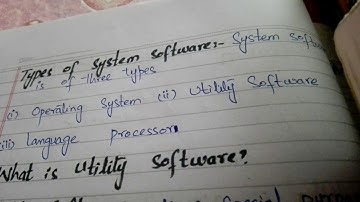 Types of System Software:- System Softw
is of three types
(i) Operating System (ii) Utility Software
(iii) Language Processor
What is Utility Software?
Special